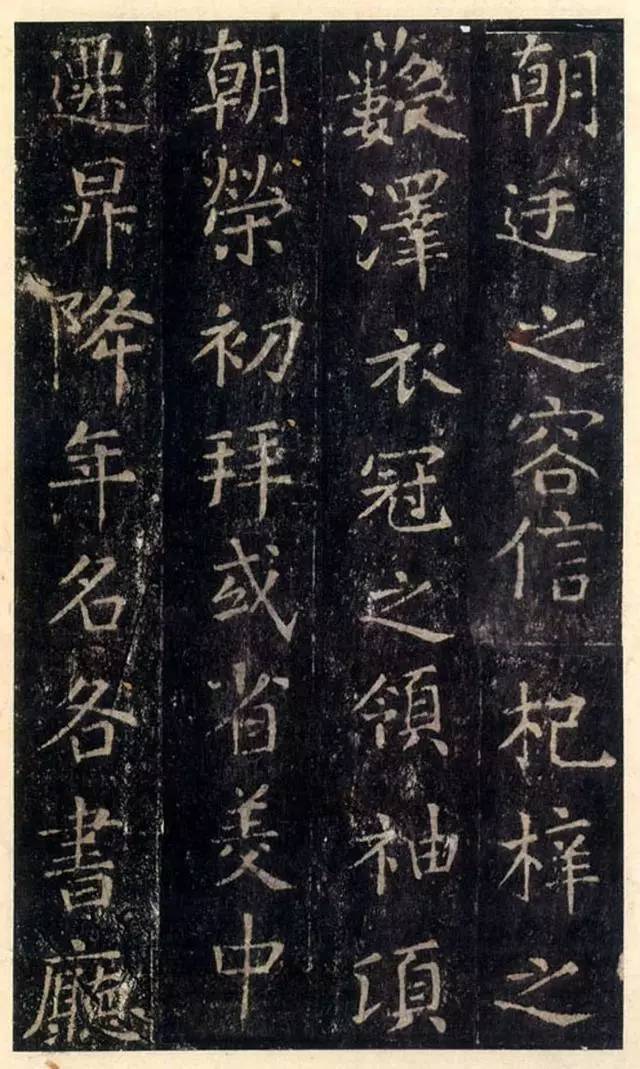 朝廷之容信杞梓之
藪澤衣冠之領袖項
朝榮初拜或省美中
遷昇降年名各書廳